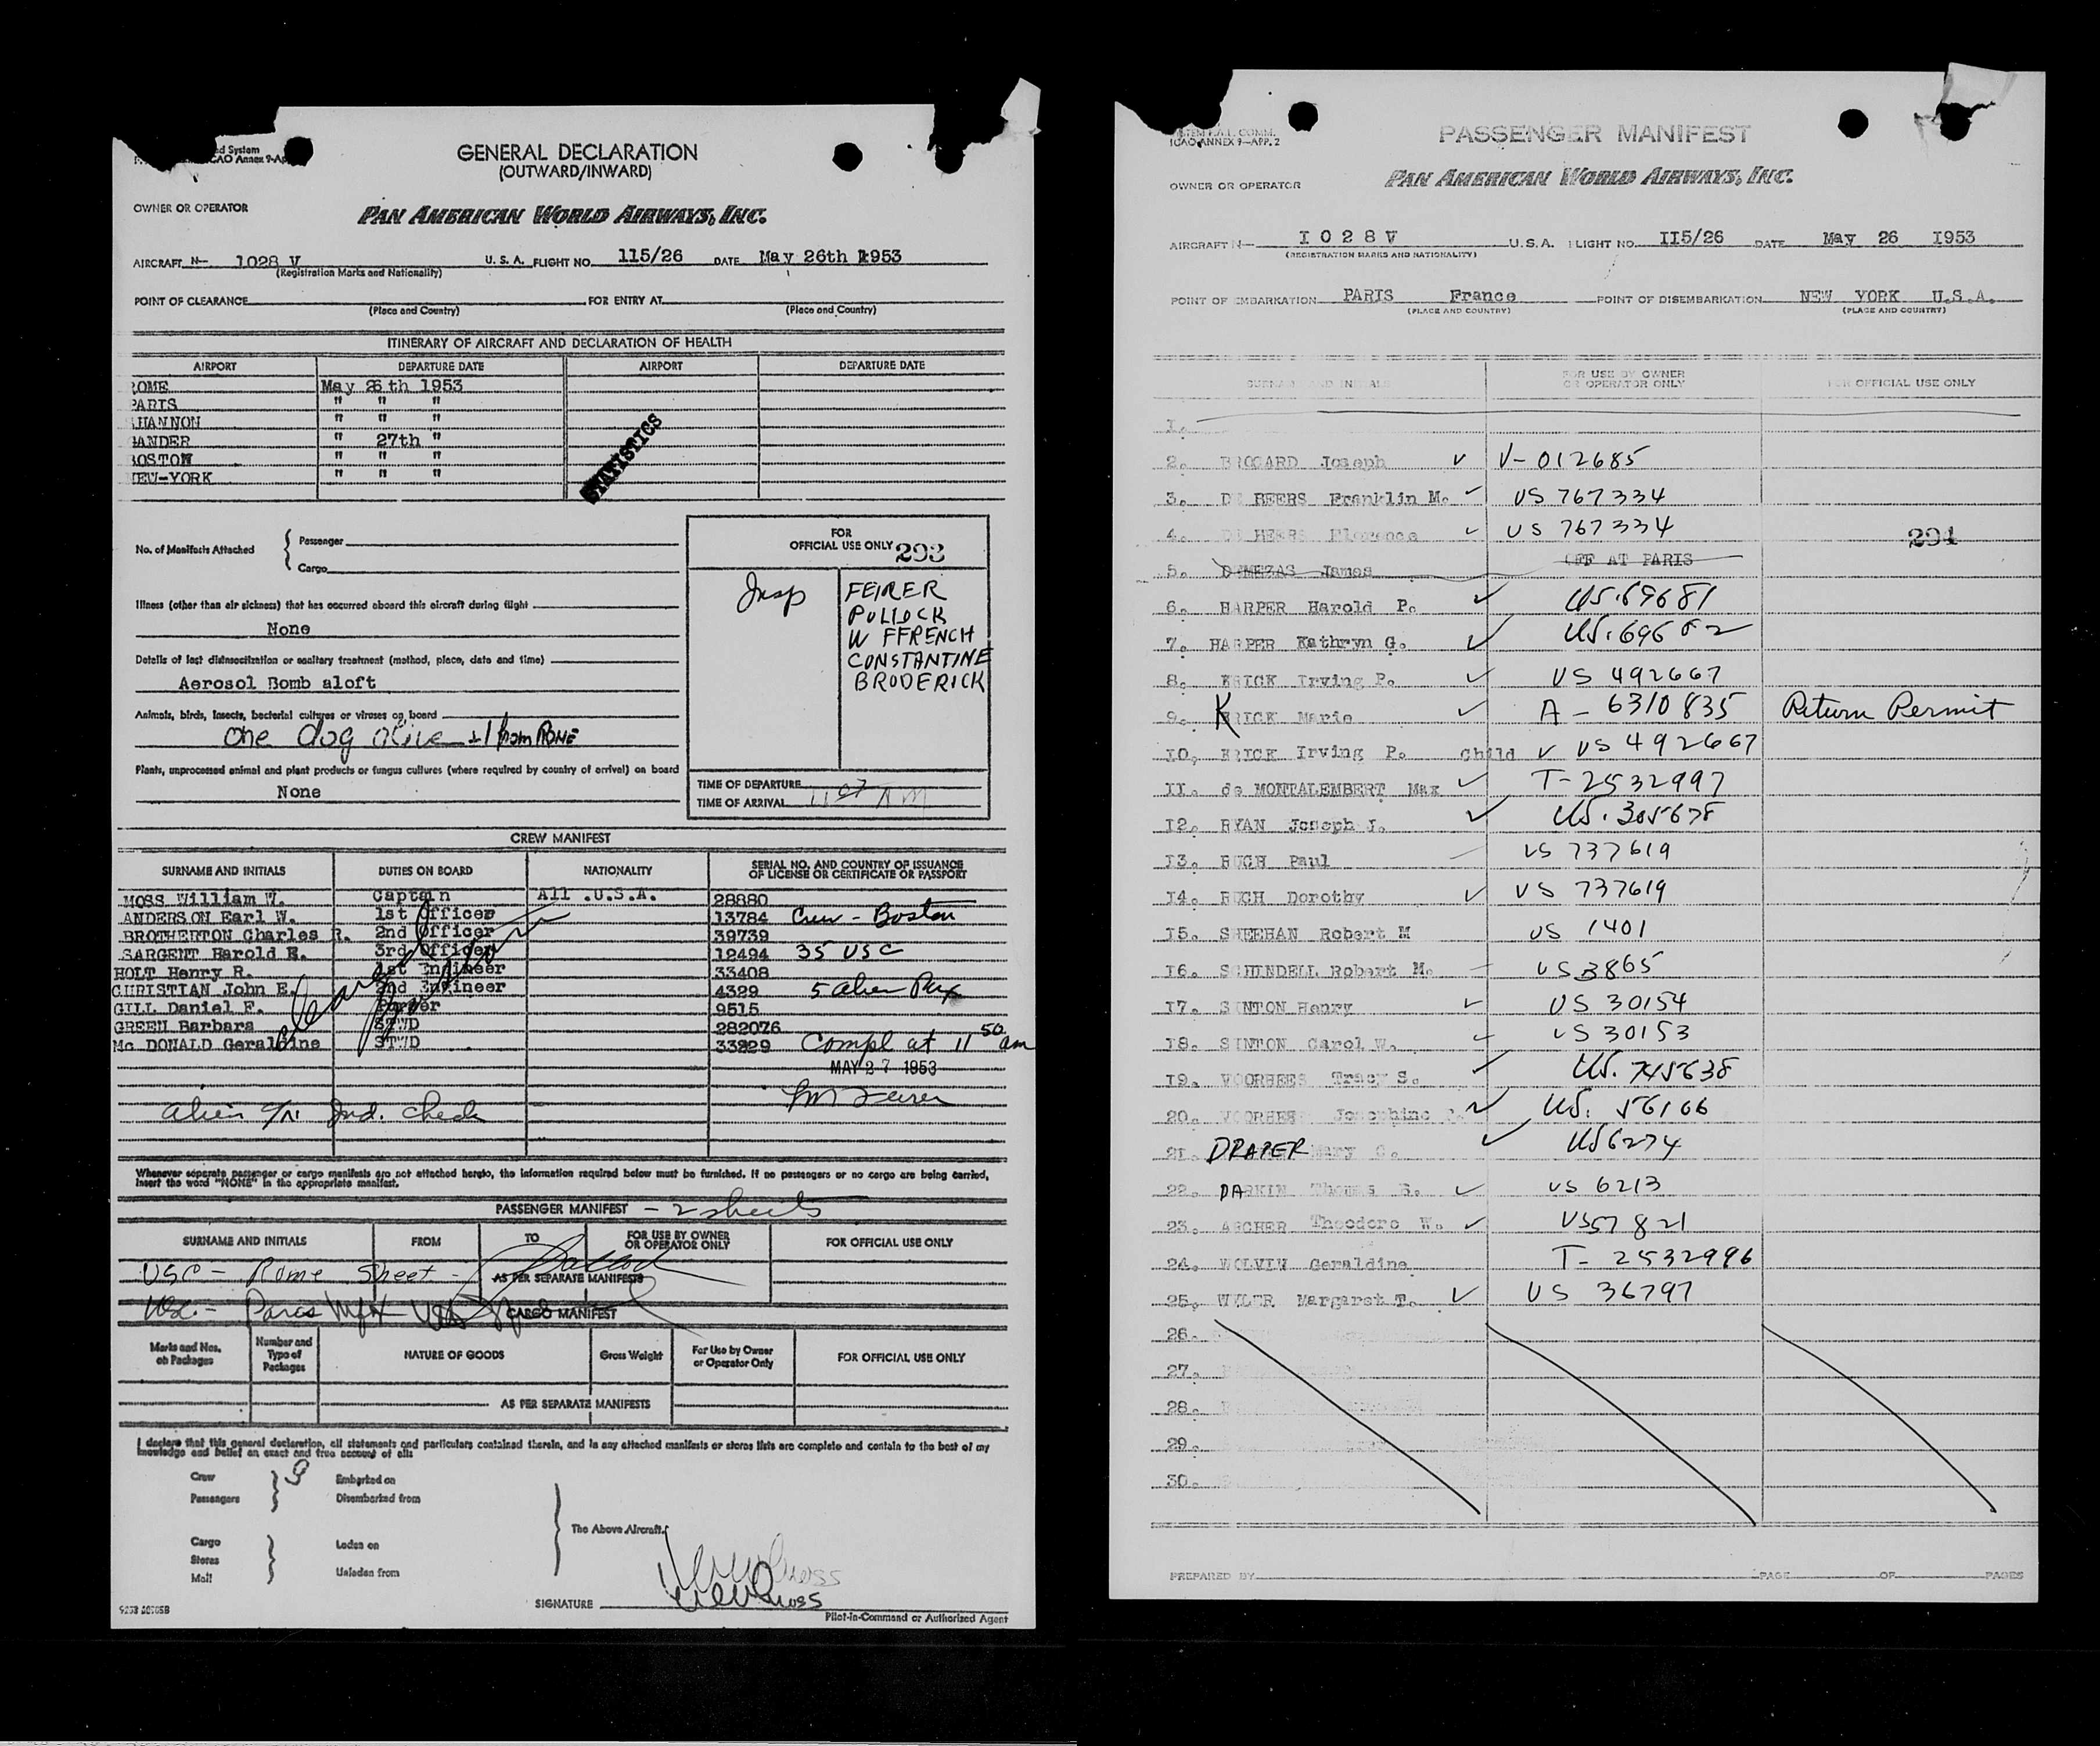 GENERAL DECLARATION
(OUTWARD/INWARD)
OWNER OR OPERATOR
PAN AMERICAN WORLD AIRWAYS, INC.
AIRCRAFT N- 1028 V U. S. A. FLIGHT NO. 115/26 DATE May 26th 1953
(Registration Marks and Nationality)
POINT OF CLEARANCE FOR ENTRY AT
(Place and Country) (Place and Country)
ITINERARY OF AIRCRAFT AND DECLARATION OF HEALTH
AIRPORT DEPARTURE DATE AIRPORT DEPARTURE DATE
ROME May 26th 1953
PARIS " " "
SHANNON " " "
GANDER " 27th "
BOSTON " " "
NEW-YORK " " "
STATISTICS
No. of Manifests Attached
Passenger
Cargo
FOR OFFICIAL USE ONLY 293
Insp
FEIRER
PULLOCK
W FFRENCH
CONSTANTINE
BRODERICK
Illness (other than air sickness) that has occurred aboard this aircraft during flight
None
Details of last disinsectization or sanitary treatment (method, place, date and time)
Aerosol Bomb aloft
Animals, birds, insects, bacterial cultures or viruses on board
one dog alive +1 from ROME
Plants, unprocessed animal and plant products or fungus cultures (where required by country of arrival) on board
None
TIME OF DEPARTURE
TIME OF ARRIVAL 11 07 AM
CREW MANIFEST
SURNAME AND INITIALS DUTIES ON BOARD NATIONALITY SERIAL NO. AND COUNTRY OF ISSUANCE OF LICENSE OR CERTIFICATE OR PASSPORT
MOSS William W. Captain All .U.S.A. 28880
ANDERSON Earl W. 1st Officer 13784 Crew - Boston
BROTHERTON Charles R. 2nd Officer 39739
SARGENT Harold E. 3rd Officer 12494 35 USC
HOLT Henry R. 1st Engineer 33408
CHRISTIAN John E. 2nd Engineer 4329 5 alien Pax
GILL Daniel F. Purser 9515
GREEN Barbara STWD 282076
Mc DONALD Geraldine STWD 33229 Compl at 11 50 am
MAY 27 1953
Ind. check
Whenever separate passenger or cargo manifests are not attached hereto, the information required below must be furnished. If no passengers or no cargo are being carried,
insert the word "NONE" in the appropriate manifest.
PASSENGER MANIFEST - 2 sheets
SURNAME AND INITIALS FROM TO FOR USE BY OWNER OR OPERATOR ONLY FOR OFFICIAL USE ONLY
USC - Rome Sheet -
AS PER SEPARATE MANIFESTS
USC - Paris
CARGO MANIFEST
Marks and Nos. on Packages Number and Type of Packages NATURE OF GOODS Gross Weight For Use by Owner or Operator Only FOR OFFICIAL USE ONLY
AS PER SEPARATE MANIFESTS
I declare that this general declaration, all statements and particulars contained therein, and in any attached manifests or stores lists are complete and contain to the best of my
knowledge and belief an exact and true account of all:
Crew 9 Embarked on
Passengers Disembarked from
The Above Aircraft.
Cargo Laden on
Stores
Mail Unladen from
SIGNATURE
Pilot-in-Command or Authorized Agent
ICAO ANNEX 9-APP. 2
PASSENGER MANIFEST
OWNER OR OPERATOR
PAN AMERICAN WORLD AIRWAYS, INC.
AIRCRAFT N- I 0 2 8 V U.S.A. FLIGHT NO. II5/26 DATE May 26 I953
(REGISTRATION MARKS AND NATIONALITY)
POINT OF EMBARKATION PARIS France POINT OF DISEMBARKATION NEW YORK U.S.A.
(PLACE AND COUNTRY) (PLACE AND COUNTRY)
SURNAME AND INITIALS FOR USE BY OWNER OR OPERATOR ONLY FOR OFFICIAL USE ONLY
I.
2. BROSARD Joseph V-012685
3. DE BEERS Franklin M. US 767334
4. DE BEERS Florence US 767334
294
5. DEMEZAS James OFF AT PARIS
6. HARPER Harold P. US.69681
7. HARPER Kathryn G. US.69682
8. KRICK Irving P. US 492667
9. KRICK Marie A - 6310835 Return Permit
IO. KRICK Irving P. Child US 492667
II. de MONTALEMBERT Max T-2532997
I2. RYAN Joseph J. US.305678
I3. RUGH Paul US 737619
I4. RUGH Dorothy US 737619
I5. SHEEHAN Robert M US 1401
I6. SCHINDELL Robert M. US 3865
I7. SINTON Henry US 30154
I8. SINTON Carol W. US 30153
I9. VOORHEES Tracy S. US. 745638
20. VOORHEES Josephine US. 56166
21. DRAPER Mary C. US 6274
22. DARKIN Thomas S. US 6213
23. ASCHER Theodore W. US57821
24. WOLVIN Geraldine T- 2532996
25. WYLER Margaret T. US 36797
26.
27.
28.
29.
30.
PREPARED BY PAGE OF PAGES